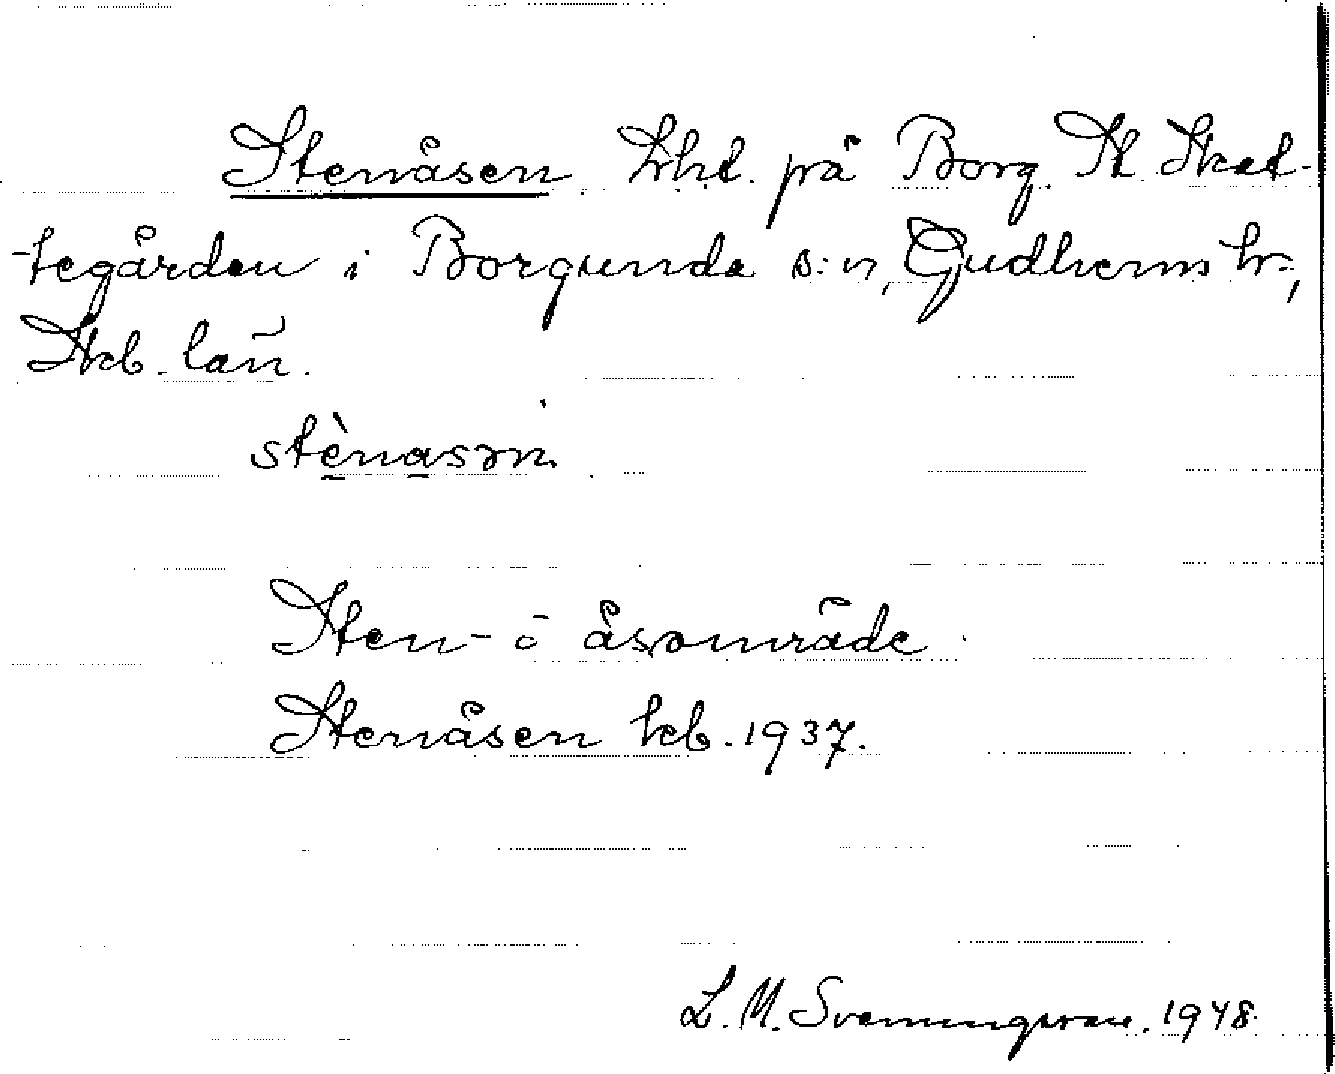 Stenåsen Lht. på Borg. St Skat-
tegården i Borgunda s:n, Gudhems hr.,
Skb. län.
stènasən.
Sten- o åsområde.
Stenåsen kb. 1937.
L. M. Svenungsson. 1948.